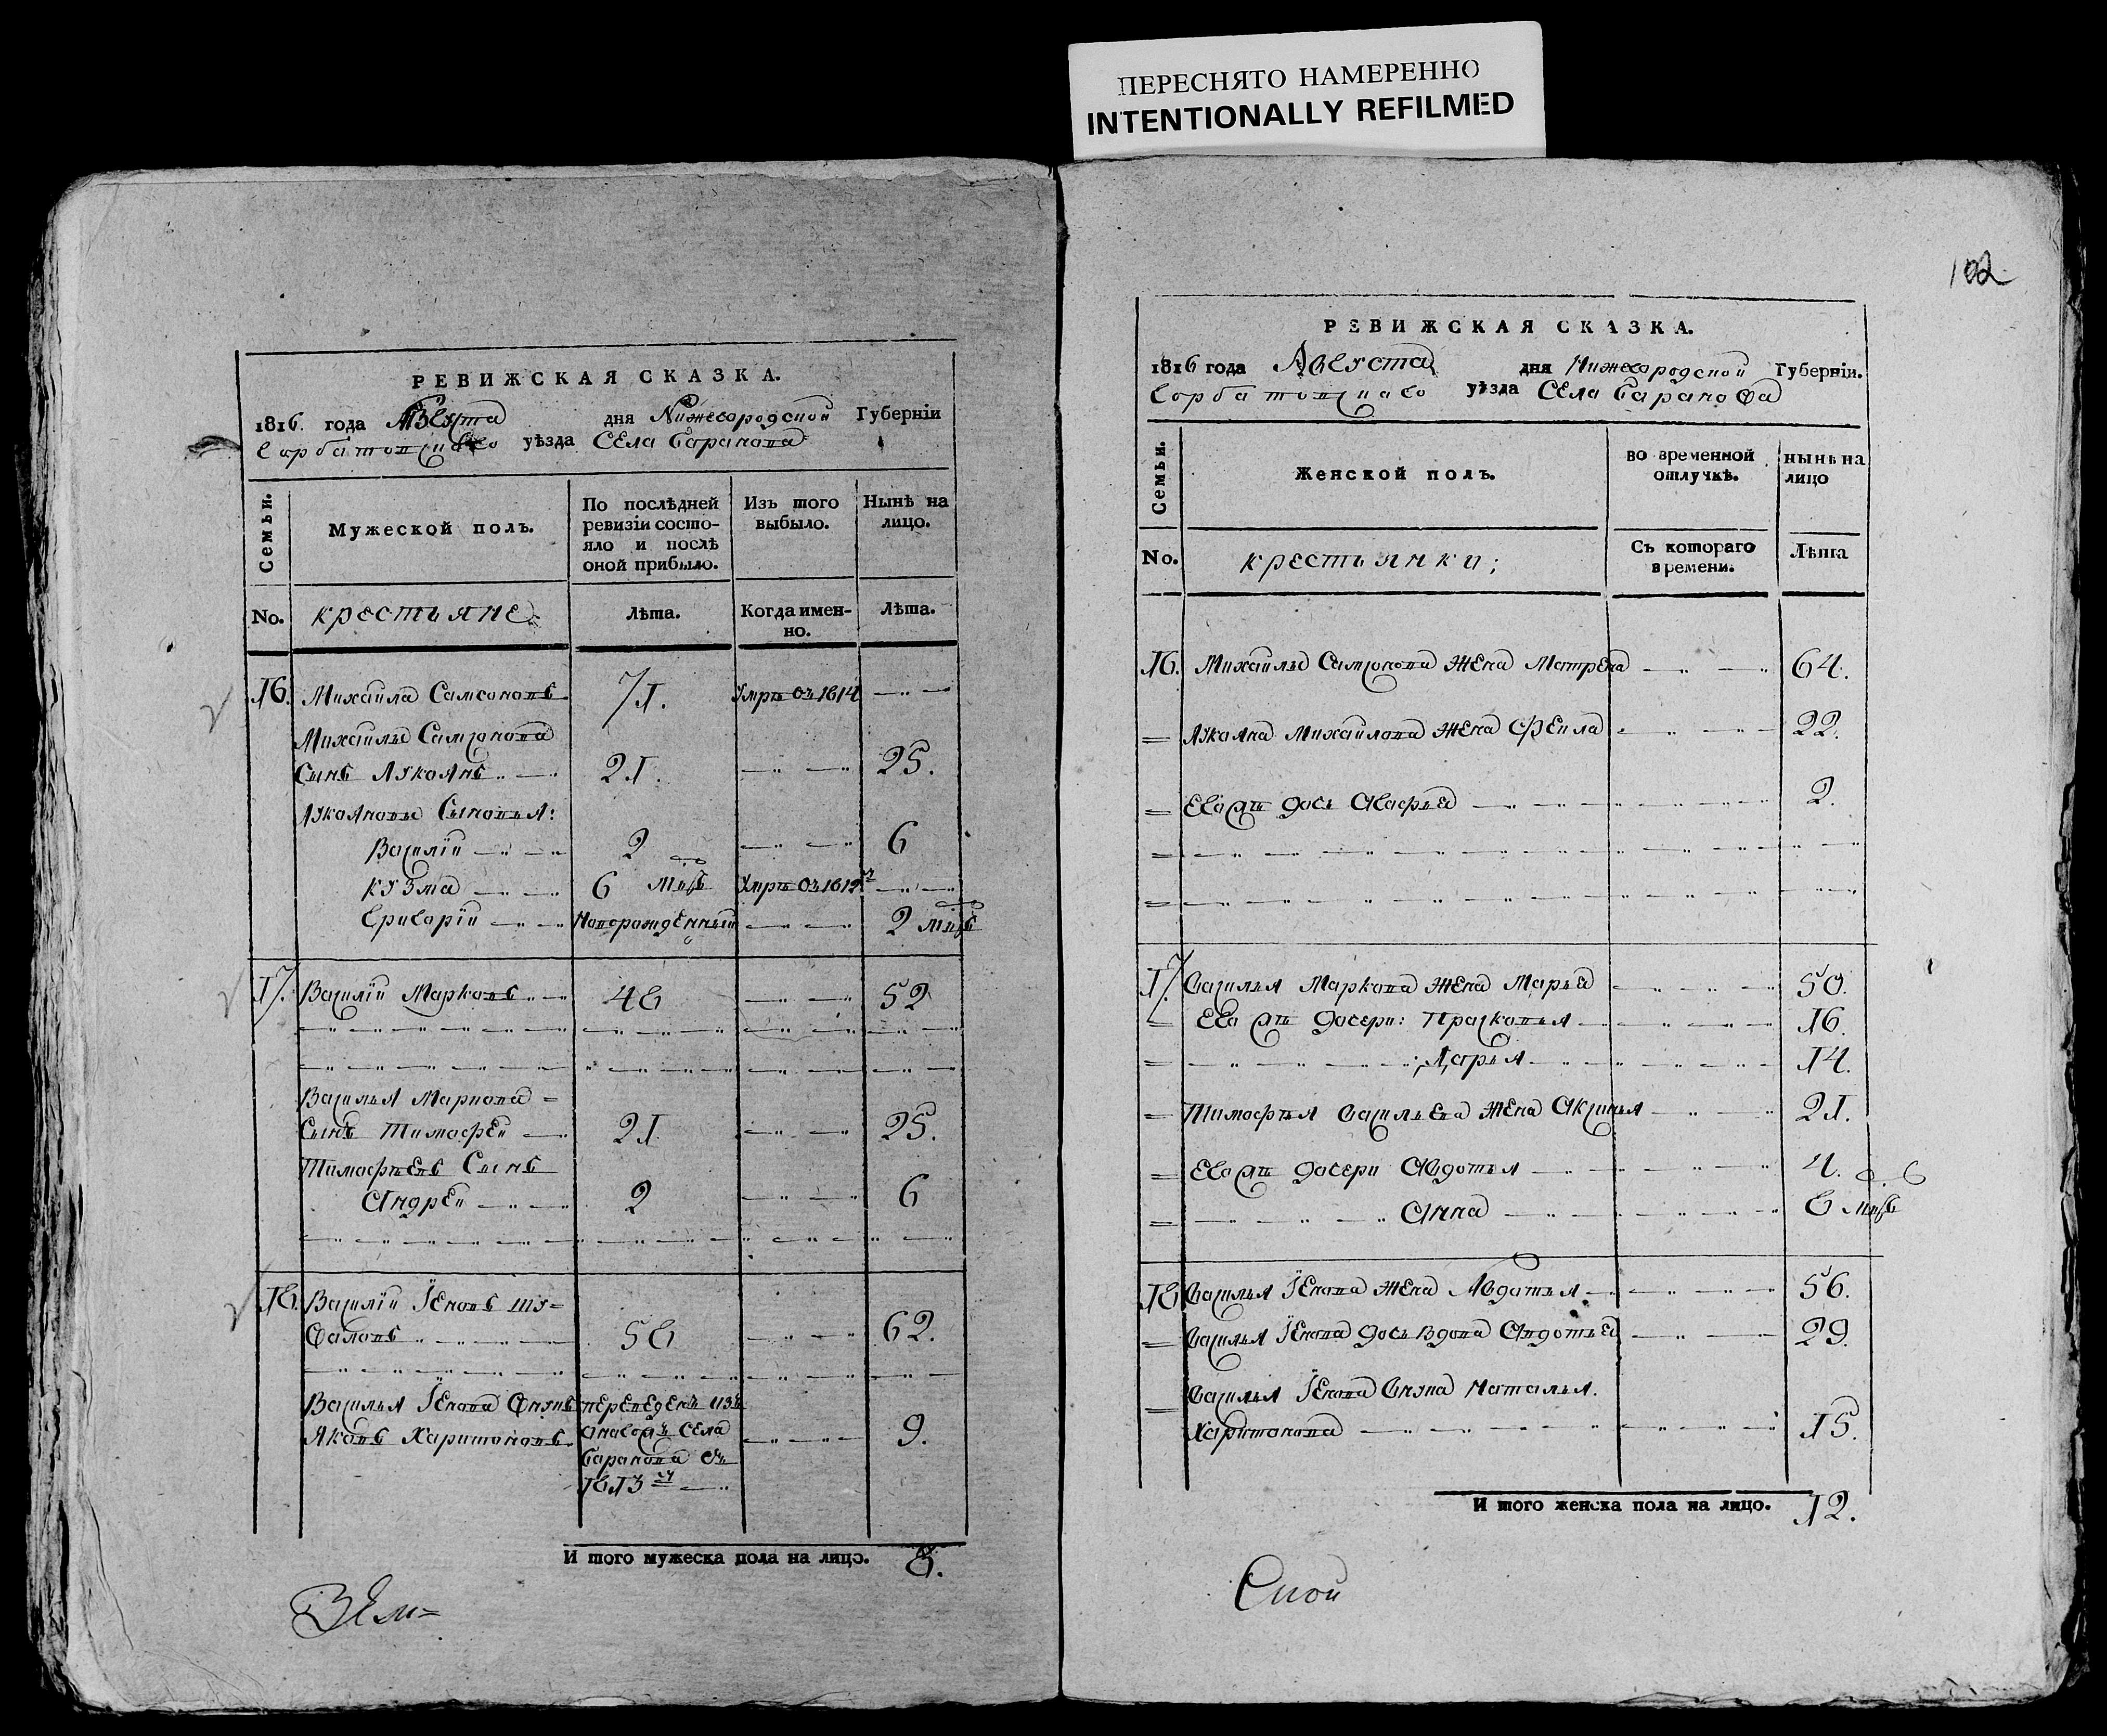 ПЕРЕСНЯТО НАМЕРЕННО
INTENTIONALLY REFILMED
РЕВИЖСКАЯ СКАЗКА.
1816. года Августа дня Нижегородской Губерніи
Горбатовскаго уѣзда Села Баранова
Семьи.
Мужеской полъ.
По послѣдней ревизіи состояло и послѣ оной прибыло.
Изъ того выбыло.
Нынѣ на лицо.
No. крестьяне
лѣта.
Когда именно.
лѣта.
16. Михайла Самсоновъ 71. Умръ въ 1814
Михайлы Самсонова
Сынъ Лукоянъ 21. 25.
Лукояновы Сыновья:
Василій 2 6
Кузма 6 мцъ Умръ въ 1812 г
Григорій Новорожденный 2 мцъ
17. Василій Марковъ 48 52
Василья Маркова =
Сынъ Тимофей 21 25.
Тимофѣевъ Сынъ
Андрей 2 6
18. Василій Іевовъ
58 62.
Василья Іевова Внукъ переведенъ изъ
Яковъ Харитоновъ села 9.
Баранова въ
1813 г
И того мужеска пола на лицо. 8.
Зем=
102
РЕВИЖСКАЯ СКАЗКА.
1816 года Августа дня Нижегородской Губерніи.
Горбатовскаго уѣзда Села Баранова
Семьи.
Женской полъ.
во временной отлучкѣ.
нынѣ на лицо
No. крестьянки;
Съ котораго времени.
Лѣта
16. Михайлы Самсонова жена Матрена 64.
Лукояна Михайлова жена 22.
Его дочь 2.
17. Василья Маркова жена Марья 50.
Его дочери: Прасковья 16.
Дарья 14.
Тимофѣя Васильева жена Аксинья 21.
Его дочери Авдотья 4.
Анна 8 мцъ
18 Василья Іевова жена Авдотья 56.
Василья Іевова дочь вдова Авдотья 29.
Василья Іевова Внука Наталья
Харитонова 15.
И того женска пола на лицо. 12.
Ской